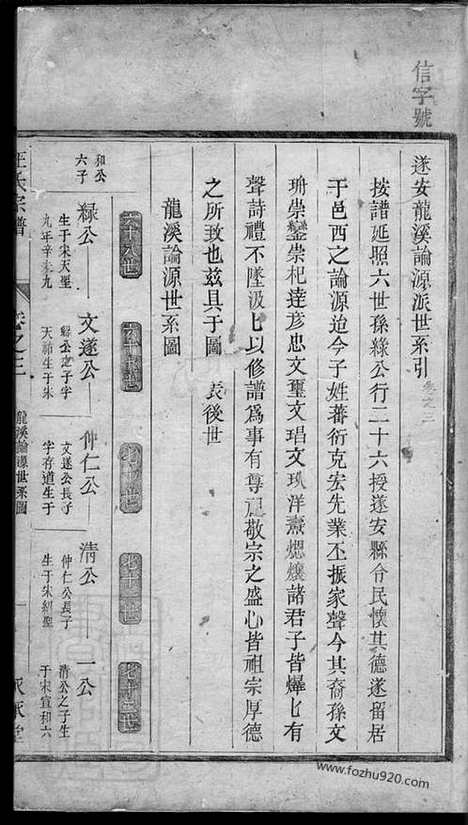 信字號
遂安龍溪論源派世系引 卷之三
按譜延照六世孫綠公行二十六授遂安縣令民懷其德遂留居
于邑西之論源迨今子姓蕃衍克宏先業丕振家聲今其裔孫文
崇鑾崇杞達彥忠文璽文琩文 洋燾煾爌諸君子皆爗匕有
聲詩禮不墜汲匕以修譜爲事有尊 敬宗之盛心皆祖宗厚德
之所致也兹具于圖 表後世
龍溪論源世系圖
六十八世
世
世
世
世
和公六子
綠公
生于宋天聖
九年辛未九
文遂公
綠公之子字
天 生于宋
仲仁公
文遂公長子
字存道生于
清公
仲仁公長子
生于宋紹聖
一公
清公之子生
于宋宣和六
汪氏宗譜
卷之三
龍溪論源世系圖
www.fozhu920.com